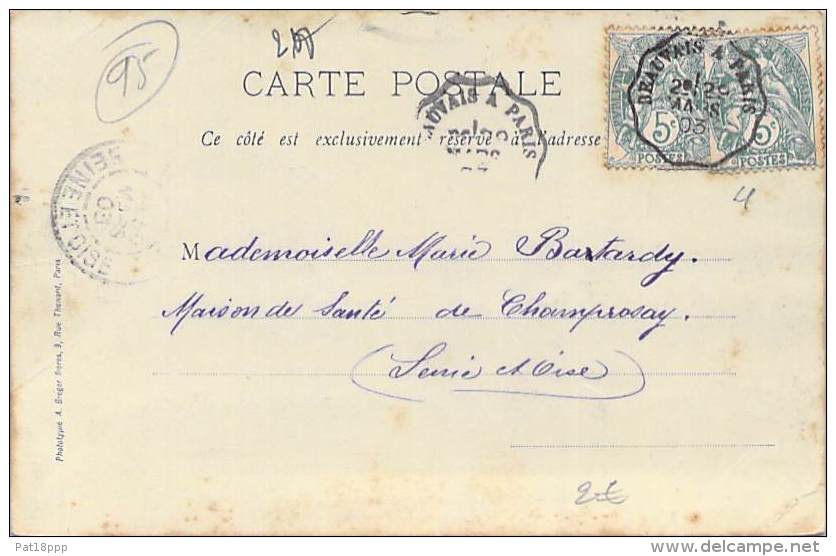 95
CARTE POSTALE
Ce côté est exclusivement réservé à l'adresse
BEAUVAIS A PARIS
MARS
03
5c 5c
POSTES POSTES
AUVAIS A PARIS
SEINE ET OISE
03
Mademoiselle Marie Bastardy.
Maison de Santé de Champrosay.
(Seine et Oise)
Phototypie A. Breger frères, 9, Rue Thénard, Paris
2€
Pat18ppp
www.delcampe.net